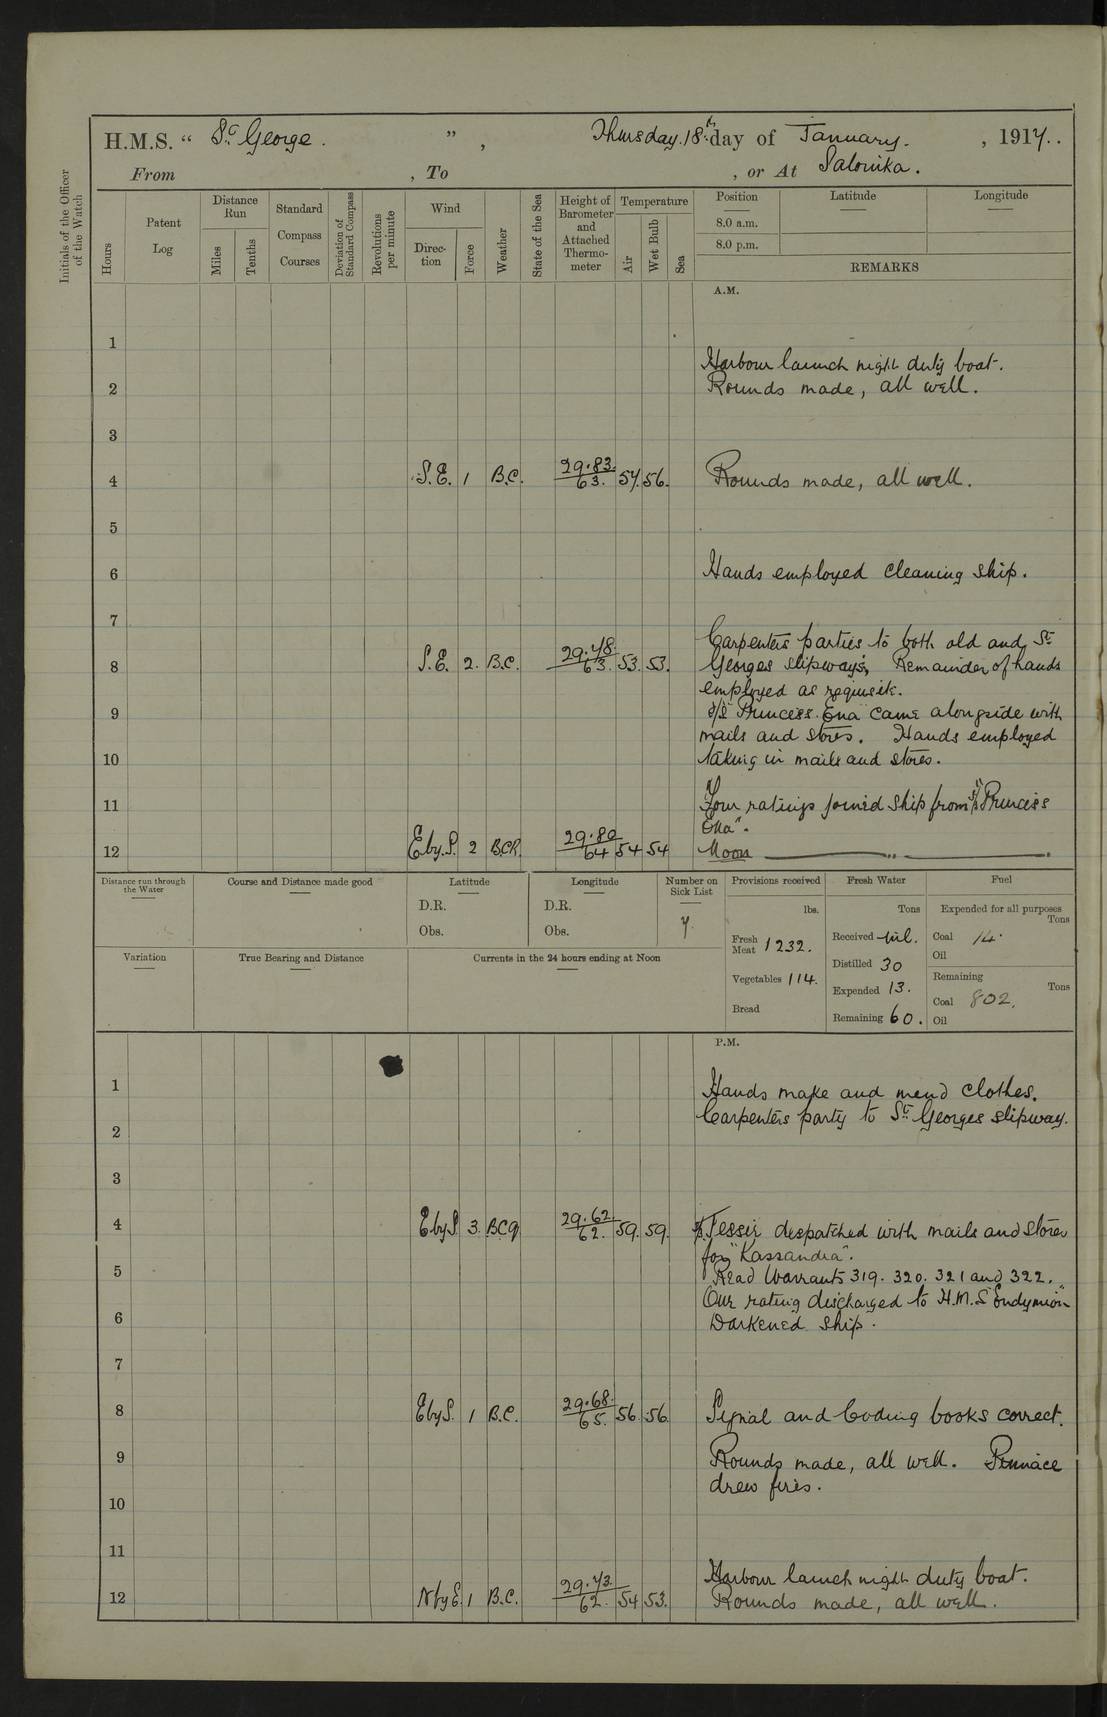 H.M.S. “ St. George. ” , Thursday. 18th day of January. , 1917..
From , To , or At Salonika.
Initials of the Officer of the Watch
Hours
Patent Log
Distance Run
Miles
Tenths
Standard Compass Courses
Deviation of Standard Compass
Revolutions per minute
Wind
Direction
Force
Weather
State of the Sea
Height of Barometer and Attached Thermometer
Temperature
Air
Wet Bulb
Sea
Position
Latitude
Longitude
8.0 a.m.
8.0 p.m.
REMARKS
A.M.
1
Harbour launch night duty boat.
2 Rounds made, all well.
3
4 S.E. 1 B.C. 29.83 63. 57. 56. Rounds made, all well.
5
6 Hands employed cleaning ship.
7
Carpenters parties to both old and St.
8 S.E. 2. B.C. 29.78 63. 53. 53. Georges slipways, Remainder of hands
employed as requisite.
9 s/s Princess Ena came alongside with
mails and stores. Hands employed
10 taking in mails and stores.
11 Four ratings joined ship from s/s "Princess
Ena".
12 E by S. 2 B.C.R. 29.80 64 54 54 Noon
Distance run through the Water
Course and Distance made good
Latitude
D.R.
Obs.
Longitude
D.R.
Obs.
Number on Sick List
7.
Provisions received
lbs.
Fresh Meat 1232.
Vegetables 114.
Bread
Fresh Water
Tons
Received nil.
Distilled 30
Expended 13.
Remaining 60.
Fuel
Expended for all purposes
Tons
Coal 14.
Oil
Remaining
Tons
Coal 802.
Oil
Variation
True Bearing and Distance
Currents in the 24 hours ending at Noon
P.M.
1 Hands make and mend clothes.
Carpenters party to St. Georges slipway.
2
3
4 E by S 3. B.C.q. 29.62. 62. 59. 59. Tessir despatched with mails and stores
for "Kassandra".
5 Read Warrants 319. 320. 321 and 322.
Our rating discharged to H.M.S "Endymion"
6 Darkened ship.
7
8 E by S. 1 B.C. 29.68. 65. 56. 56. Signal and Coding books correct.
9 Rounds made, all well. Pinnace
drew fires.
10
11
Harbour launch night duty boat.
12 N by E. 1 B.C. 29.73. 62. 54 53. Rounds made, all well.